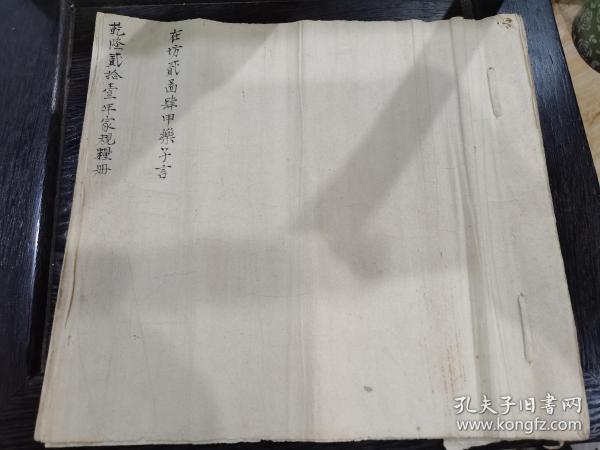 在坊贰啚肆甲藥子言
乾隆貳拾壹年家規糧册
孔夫子旧书网
www.kongfz.com